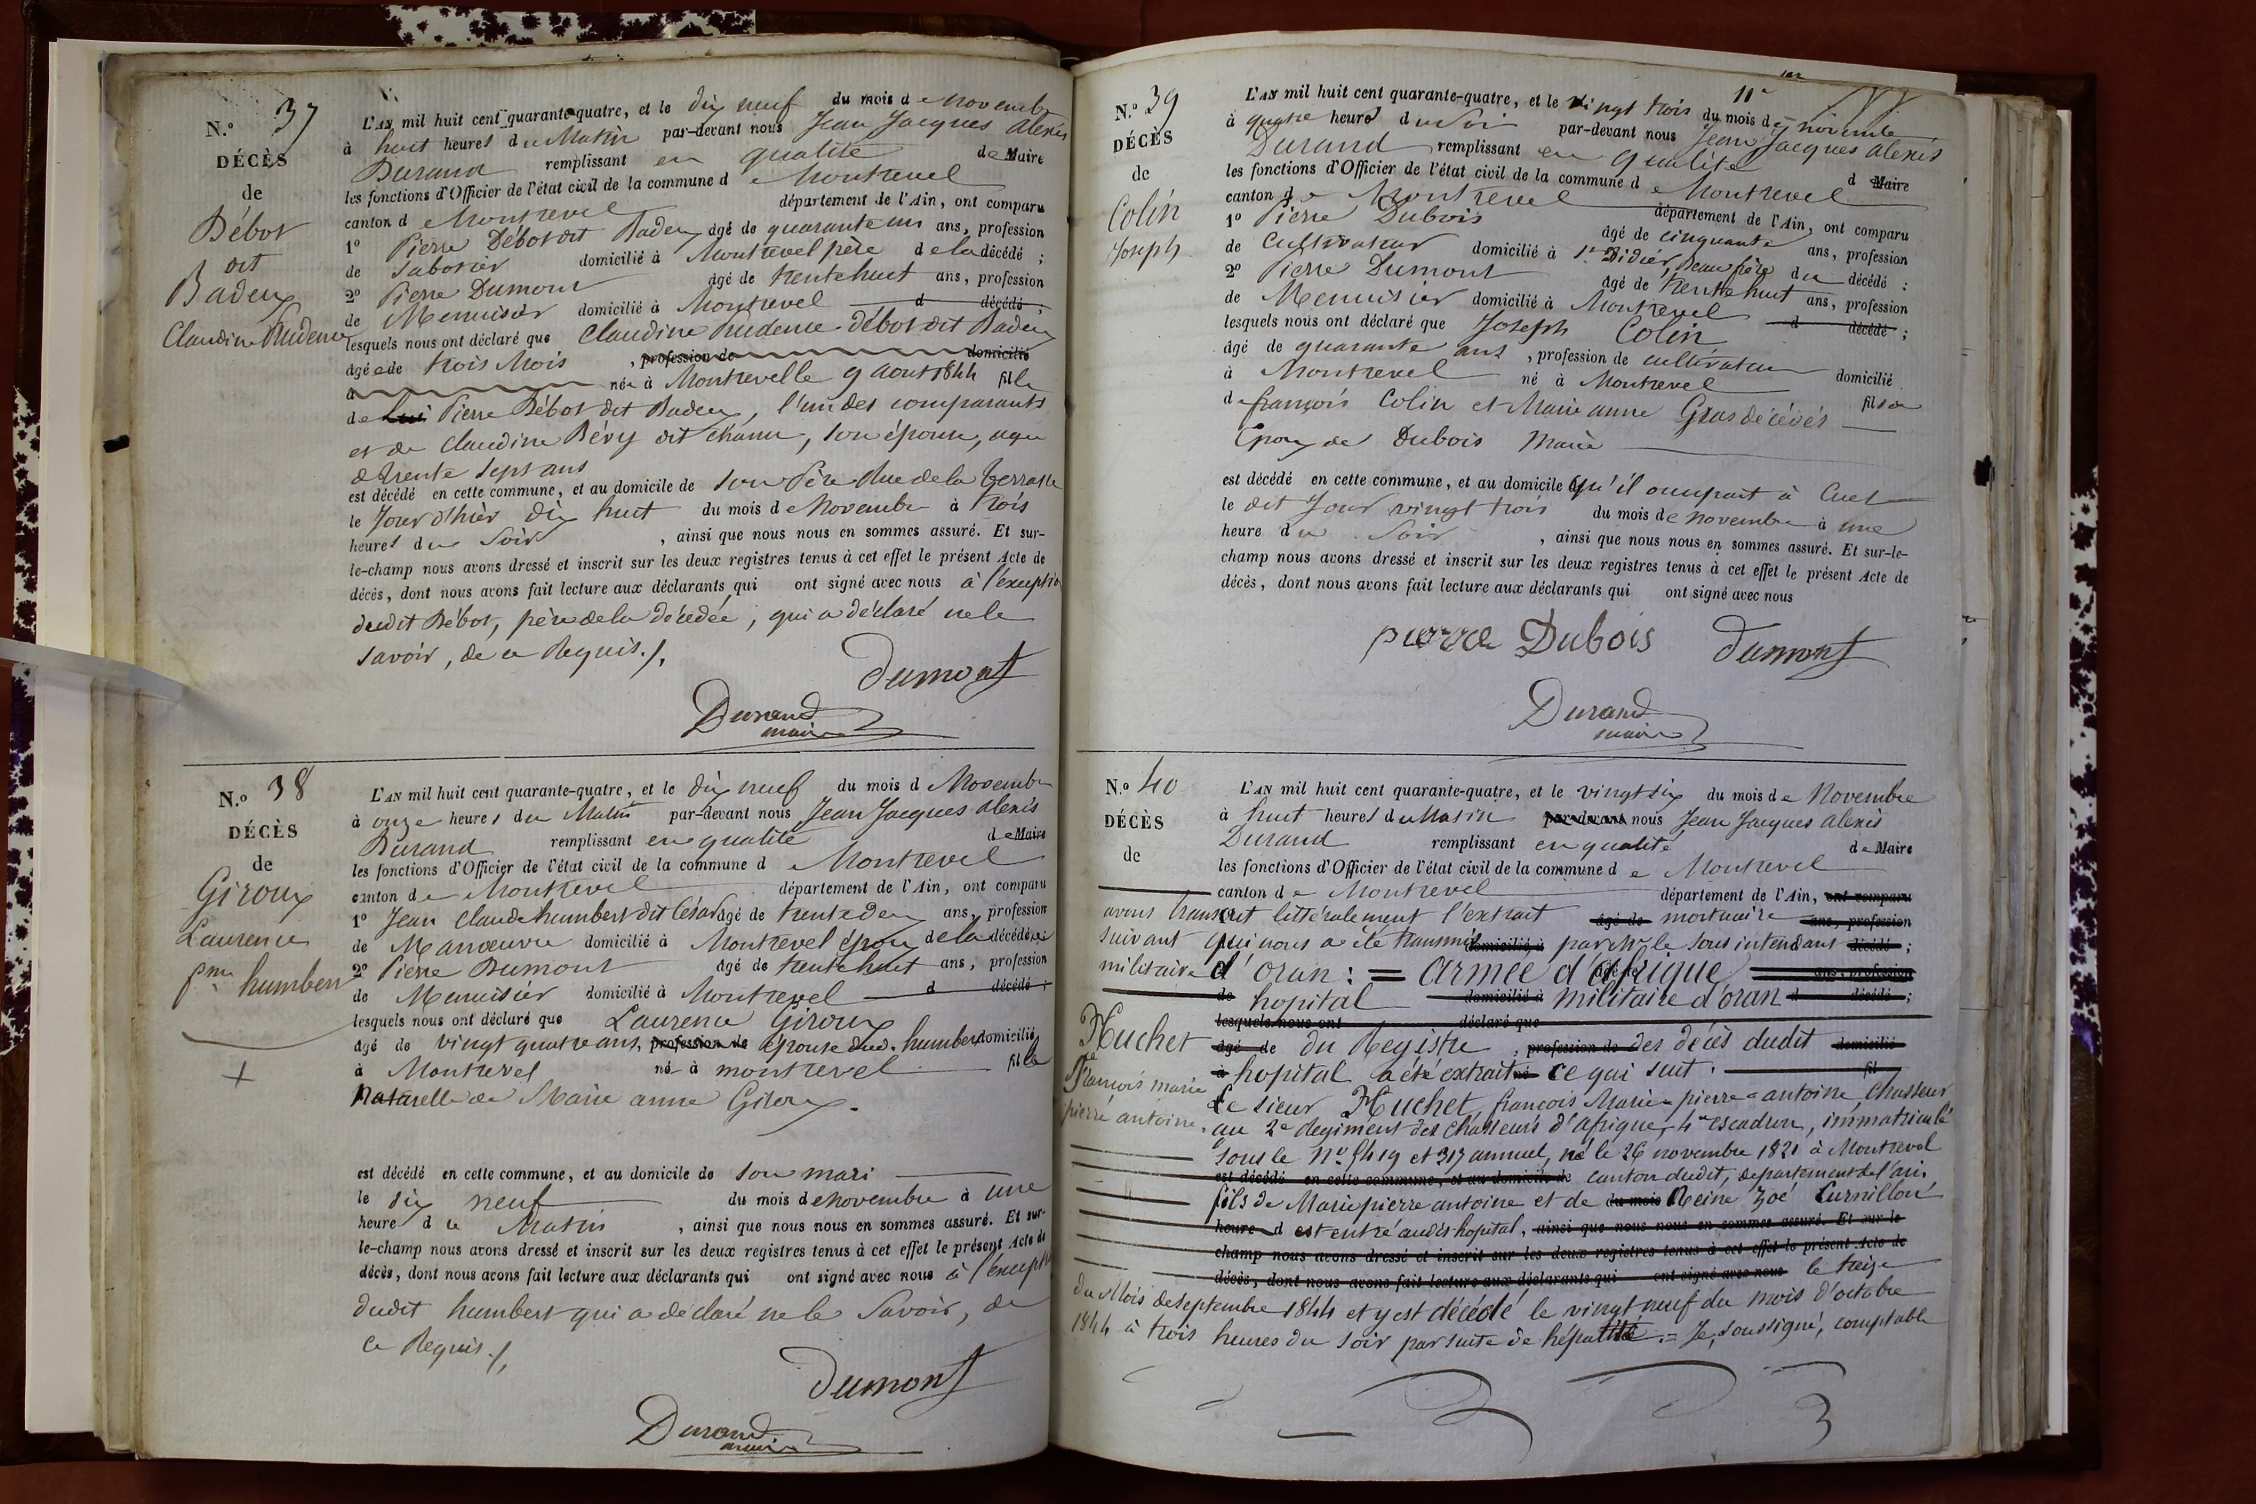 N.o 37
DÉCÈS
de
Débot
dit
Badeux
Claudine Prudence
L'AN mil huit cent quarante-quatre, et le dix neuf du mois de novembre
à huit heures du Matin par-devant nous Jean Jacques Alexis
Durand remplissant en qualité de Maire
les fonctions d'Officier de l'état civil de la commune de Montrevel
canton de Montrevel département de l'Ain, ont comparu
1o Pierre Débot dit Badeux âgé de quarante un ans, profession
de Sabotier domicilié à Montrevel père de la décédé ;
2o Pierre Dumont âgé de trente huit ans, profession
de Menuisier domicilié à Montrevel d décédé ;
lesquels nous ont déclaré que Claudine Prudence débot dit Badeux
âgée de trois Mois , profession de domicilié
à née à Montrevel le 9 aout 1844 fille
de lui Pierre Débot dit Badeux, l'un des comparants
et de Claudine Révy dit chanu, son épouse, agée
de trente sept ans
est décédé en cette commune, et au domicile de son Père Rue de la terrasse
le Jour d'hier dix huit du mois de Novembre à trois
heures du Soir , ainsi que nous nous en sommes assuré. Et sur-
le-champ nous avons dressé et inscrit sur les deux registres tenus à cet effet le présent Acte de
décès, dont nous avons fait lecture aux déclarants qui ont signé avec nous à l'exception
dudit Débot, père de la décédée, qui a déclaré ne le
savoir, de ce Requis ./.
Dumont
Durand
maire
N.o 38
DÉCÈS
de
Giroux
Laurence
fme humbert
L'AN mil huit cent quarante-quatre, et le dix neuf du mois de Novembre
à onze heures du Matin par-devant nous Jean Jacques Alexis
Durand remplissant en qualité de Maire
les fonctions d'Officier de l'état civil de la commune de Montrevel
canton de Montrevel département de l'Ain, ont comparu
1o Jean Claude humbert dit César âgé de trente deux ans, profession
de Manœuvre domicilié à Montrevel époux de la décédée
2o Pierre Dumont âgé de trente huit ans, profession
de Menuisier domicilié à Montrevel d décédé ;
lesquels nous ont déclaré que Laurence Giroux
âgé de vingt quatre ans, profession de épouse dud. humbert domicilié
à Montrevel né à montrevel fille
Naturelle de Marie anne Giroux.
est décédé en cette commune, et au domicile de son mari
le dix neuf du mois de novembre à une
heure du Matin , ainsi que nous nous en sommes assuré. Et sur-
le-champ nous avons dressé et inscrit sur les deux registres tenus à cet effet le présent Acte de
décès, dont nous avons fait lecture aux déclarants qui ont signé avec nous à l'exception
dudit humbert qui a déclaré ne le Savoir, de
ce Requis ./.
Dumont
Durand
maire
N.o 39
DÉCÈS
de
Colin
Joseph
L'AN mil huit cent quarante-quatre, et le vingt trois du mois de novembre
à quatre heures du Soir par-devant nous Jean Jacques Alexis
Durand remplissant en qualité d Maire
les fonctions d'Officier de l'état civil de la commune de Montrevel
canton de Montrevel département de l'Ain, ont comparu
1o Pierre Dubois âgé de cinquante ans, profession
de Cultivateur domicilié à St Didier, beau frère du décédé ;
2o Pierre Dumont âgé de trente huit ans, profession
de Menuisier domicilié à Montrevel d décédé ;
lesquels nous ont déclaré que Joseph Colin
âgé de quarante ans , profession de cultivateur domicilié
à Montrevel né à Montrevel fils de
de françois Colin et Marie anne Gras décédés
Epoux de Dubois Marie
est décédé en cette commune, et au domicile qu'il occupait à Cuet
le dit Jour vingt trois du mois de novembre à une
heure du Soir , ainsi que nous nous en sommes assuré. Et sur-le-
champ nous avons dressé et inscrit sur les deux registres tenus à cet effet le présent Acte de
décès, dont nous avons fait lecture aux déclarants qui ont signé avec nous
pierre Dubois Dumont
Durand
maire
N.o 40
DÉCÈS
de
Huchet
françois marie
pierre antoine.
L'AN mil huit cent quarante-quatre, et le vingt six du mois de Novembre
à huit heures du Matin par-devant nous Jean Jacques Alexis
Durand remplissant en qualité de Maire
les fonctions d'Officier de l'état civil de la commune de Montrevel
canton de Montrevel département de l'Ain, ont comparu
avons transcrit littéralement l'extrait âgé de mortuaire ans, profession
suivant qui nous a été transmis domicilié à par Mr le Sous intendant décédé ;
militaire d'oran : = Armée d'afrique ans, profession
de hopital domicilié à militaire d'oran d décédé ;
lesquels nous ont déclaré que
âgé de du Registre , profession de des décès dudit domicilié
à hopital a été extrait né ce qui suit. fil
Le sieur Huchet françois Marie pierre antoine, Chasseur
au 2e Regiment des chasseurs d'afrique, 4e escadron, immatriculé
sous le No 5419 et 317 annuel, né le 26 novembre 1821 à Montrevel
est décédé en cette commune, et au domicile de canton dudit, département de l'ain.
fils de Marie pierre antoine et de du mois Reine Zoé
heure d est entré audit hopital, ainsi que nous nous en sommes assuré. Et sur-le-
champ nous avons dressé et inscrit sur les deux registres tenus à cet effet le présent Acte de
décès, dont nous avons fait lecture aux déclarants qui ont signé avec nous le treize
du Mois de Septembre 1844 et y est décédé le vingt neuf du mois d'octobre
1844 à trois heures du soir par suite de hépatite. = Je, soussigné, comptable